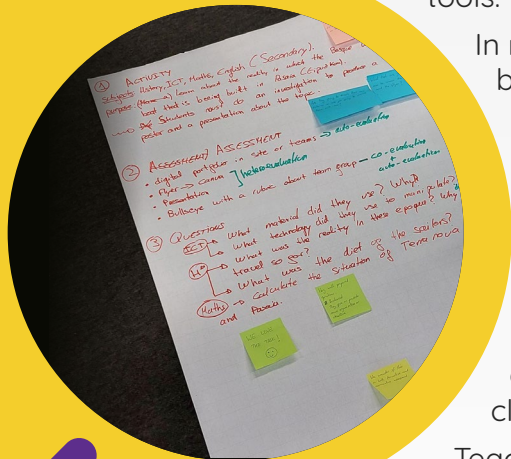 tools.
In
b
① ACTIVITY
Subjects: History, ICT, Maths, English (Secondary).
purpose: learn about the reality in what the Basque
boat that is being built in Pasaia
Students must do an investigation to produce a
poster and a presentation about the topic.
② ASSESSMENT
• digital portfolio in site or teams → auto-evaluation
• Flyer → canva
• Presentation
heteroevaluation
• Bullseye with a rubic about team group – co-evaluation
+
auto-evaluation
③ QUESTIONS
ICT → What material did they use? Why?
→ What technology did they use to manipulate?
Hª → What was the reality in these epoque? Why
travel so far?
→ What was the diet of the sailors?
Maths → Calculate the situation of Terranova
and Pasaia.
cl